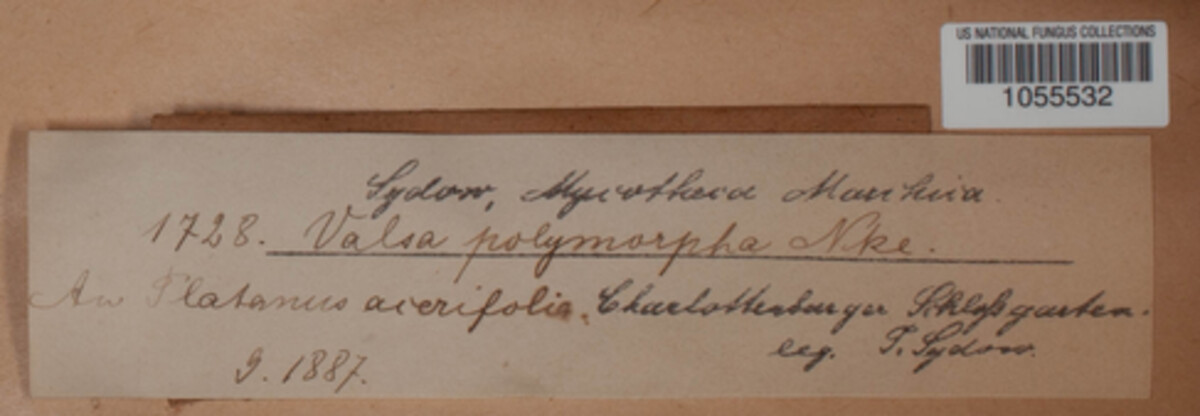 US NATIONAL FUNGUS COLLECTIONS
1055532
Sydow, Mycotheca Marchica.
1728. Valsa polymorpha Nke.
An Platanus acerifolia. Charlottenburger Schloßgarten.
leg. P. Sydow.
9. 1887.